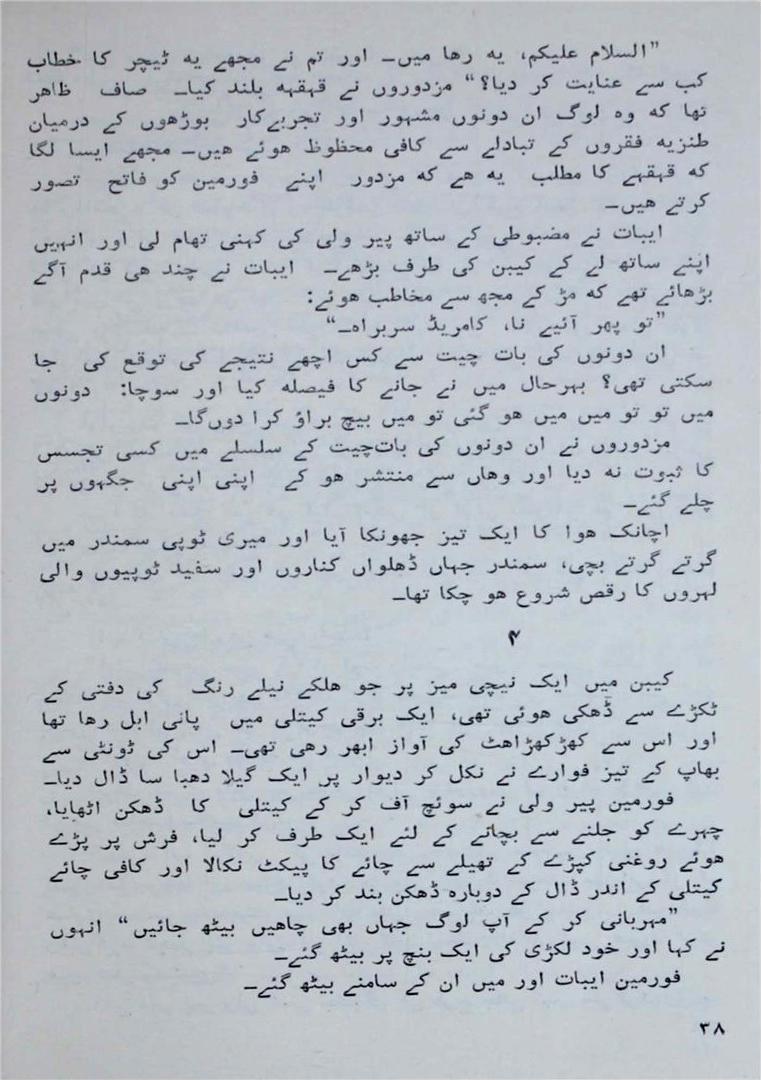 ”السلام علیکم، یه رها میں۔ اور تم نے مجھے یه ٹیچر کا خطاب
کب سے عنایت کر دیا؟“ مزدوروں نے قہقہه بلند کیا۔ صاف ظاهر
تھا که وه لوگ ان دونوں مشہور اور تجربےکار بوڑھوں کے درمیان
طنزیه فقروں کے تبادلے سے کافی محظوظ هوئے هیں۔ مجھے ایسا لگا
که قہقہے کا مطلب یه هے که مزدور اپنے فورمین کو فاتح تصور
کرتے هیں۔
ایبات نے مضبوطی کے ساتھ پیر ولی کی کہنی تھام لی اور انہیں
اپنے ساتھ لے کے کیبن کی طرف بڑھے۔ ایبات نے چند هی قدم آگے
بڑھائے تھے که مڑ کے مجھ سے مخاطب هوئے:
”تو پھر آئیے نا، کامریڈ سربراه۔“
ان دونوں کی بات چیت سے کس اچھے نتیجے کی توقع کی جا
سکتی تھی؟ بہرحال میں نے جانے کا فیصله کیا اور سوچا: دونوں
میں تو تو میں میں هو گئی تو میں بیچ براؤ کرا دوںگا۔
مزدوروں نے ان دونوں کی باتچیت کے سلسلے میں کسی تجسس
کا ثبوت نه دیا اور وهاں سے منتشر هو کے اپنی اپنی جگہوں پر
چلے گئے۔
اچانک هوا کا ایک تیز جھونکا آیا اور میری ٹوپی سمندر میں
گرتے گرتے بچی، سمندر جہاں ڈھلواں کناروں اور سفید ٹوپیوں والی
لہروں کا رقص شروع هو چکا تھا۔
۴
کیبن میں ایک نیچی میز پر جو هلکے نیلے رنگ کی دفتی کے
ٹکڑے سے ڈھکی هوئی تھی، ایک برقی کیتلی میں پانی ابل رها تھا
اور اس سے کھڑکھڑاهٹ کی آواز ابھر رهی تھی۔ اس کی ٹونٹی سے
بھاپ کے تیز فوارے نے نکل کر دیوار پر ایک گیلا دھبا سا ڈال دیا۔
فورمین پیر ولی نے سوئچ آف کر کے کیتلی کا ڈھکن اٹھایا،
چہرے کو جلنے سے بچانے کے لئے ایک طرف کر لیا، فرش پر پڑے
هوئے روغنی کپڑے کے تھیلے سے چائے کا پیکٹ نکالا اور کافی چائے
کیتلی کے اندر ڈال کے دوباره ڈھکن بند کر دیا۔
”مہربانی کر کے آپ لوگ جہاں بھی چاهیں بیٹھ جائیں“ انہوں
نے کہا اور خود لکڑی کی ایک بنچ پر بیٹھ گئے۔
فورمین ایبات اور میں ان کے سامنے بیٹھ گئے۔
۳۸